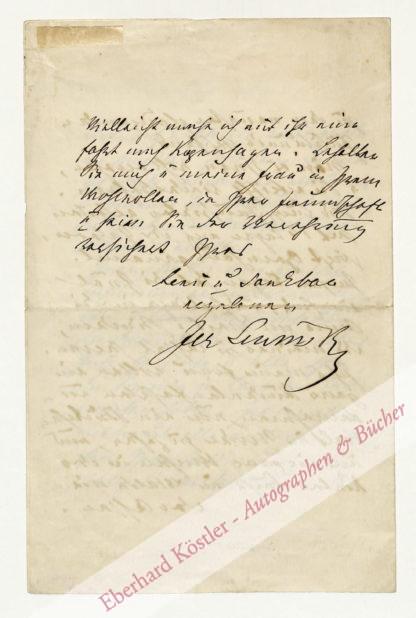 Vielleicht mache ich mit ihr eine
Fahrt nach Kopenhagen. Behalten
Sie mich u meine Frau in Ihrem
Wohlwollen, in Ihrer Freundschaft
u seien Sie der Verehrung
versichert Ihres
treu u dankbar
ergebenen
Jos Lewinsky
Eberhard Köstler - Autographen & Bücher